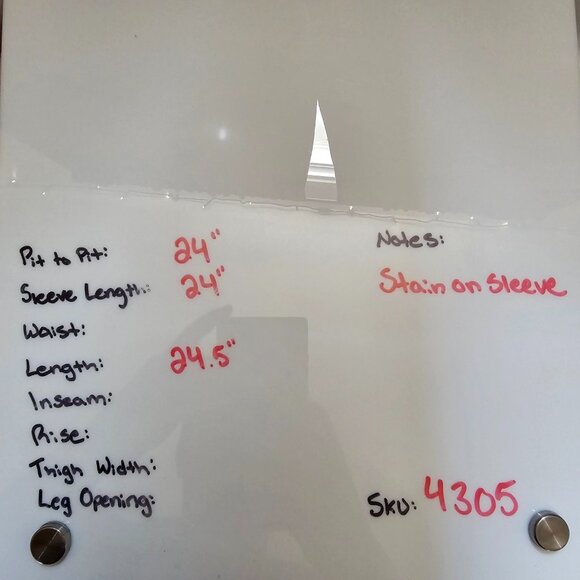 Pit to Pit: 24"
Sleeve Length: 24"
Waist:
Length: 24.5"
Inseam:
Rise:
Thigh Width:
Leg Opening:
Notes:
Stain on Sleeve
SKU: 4305